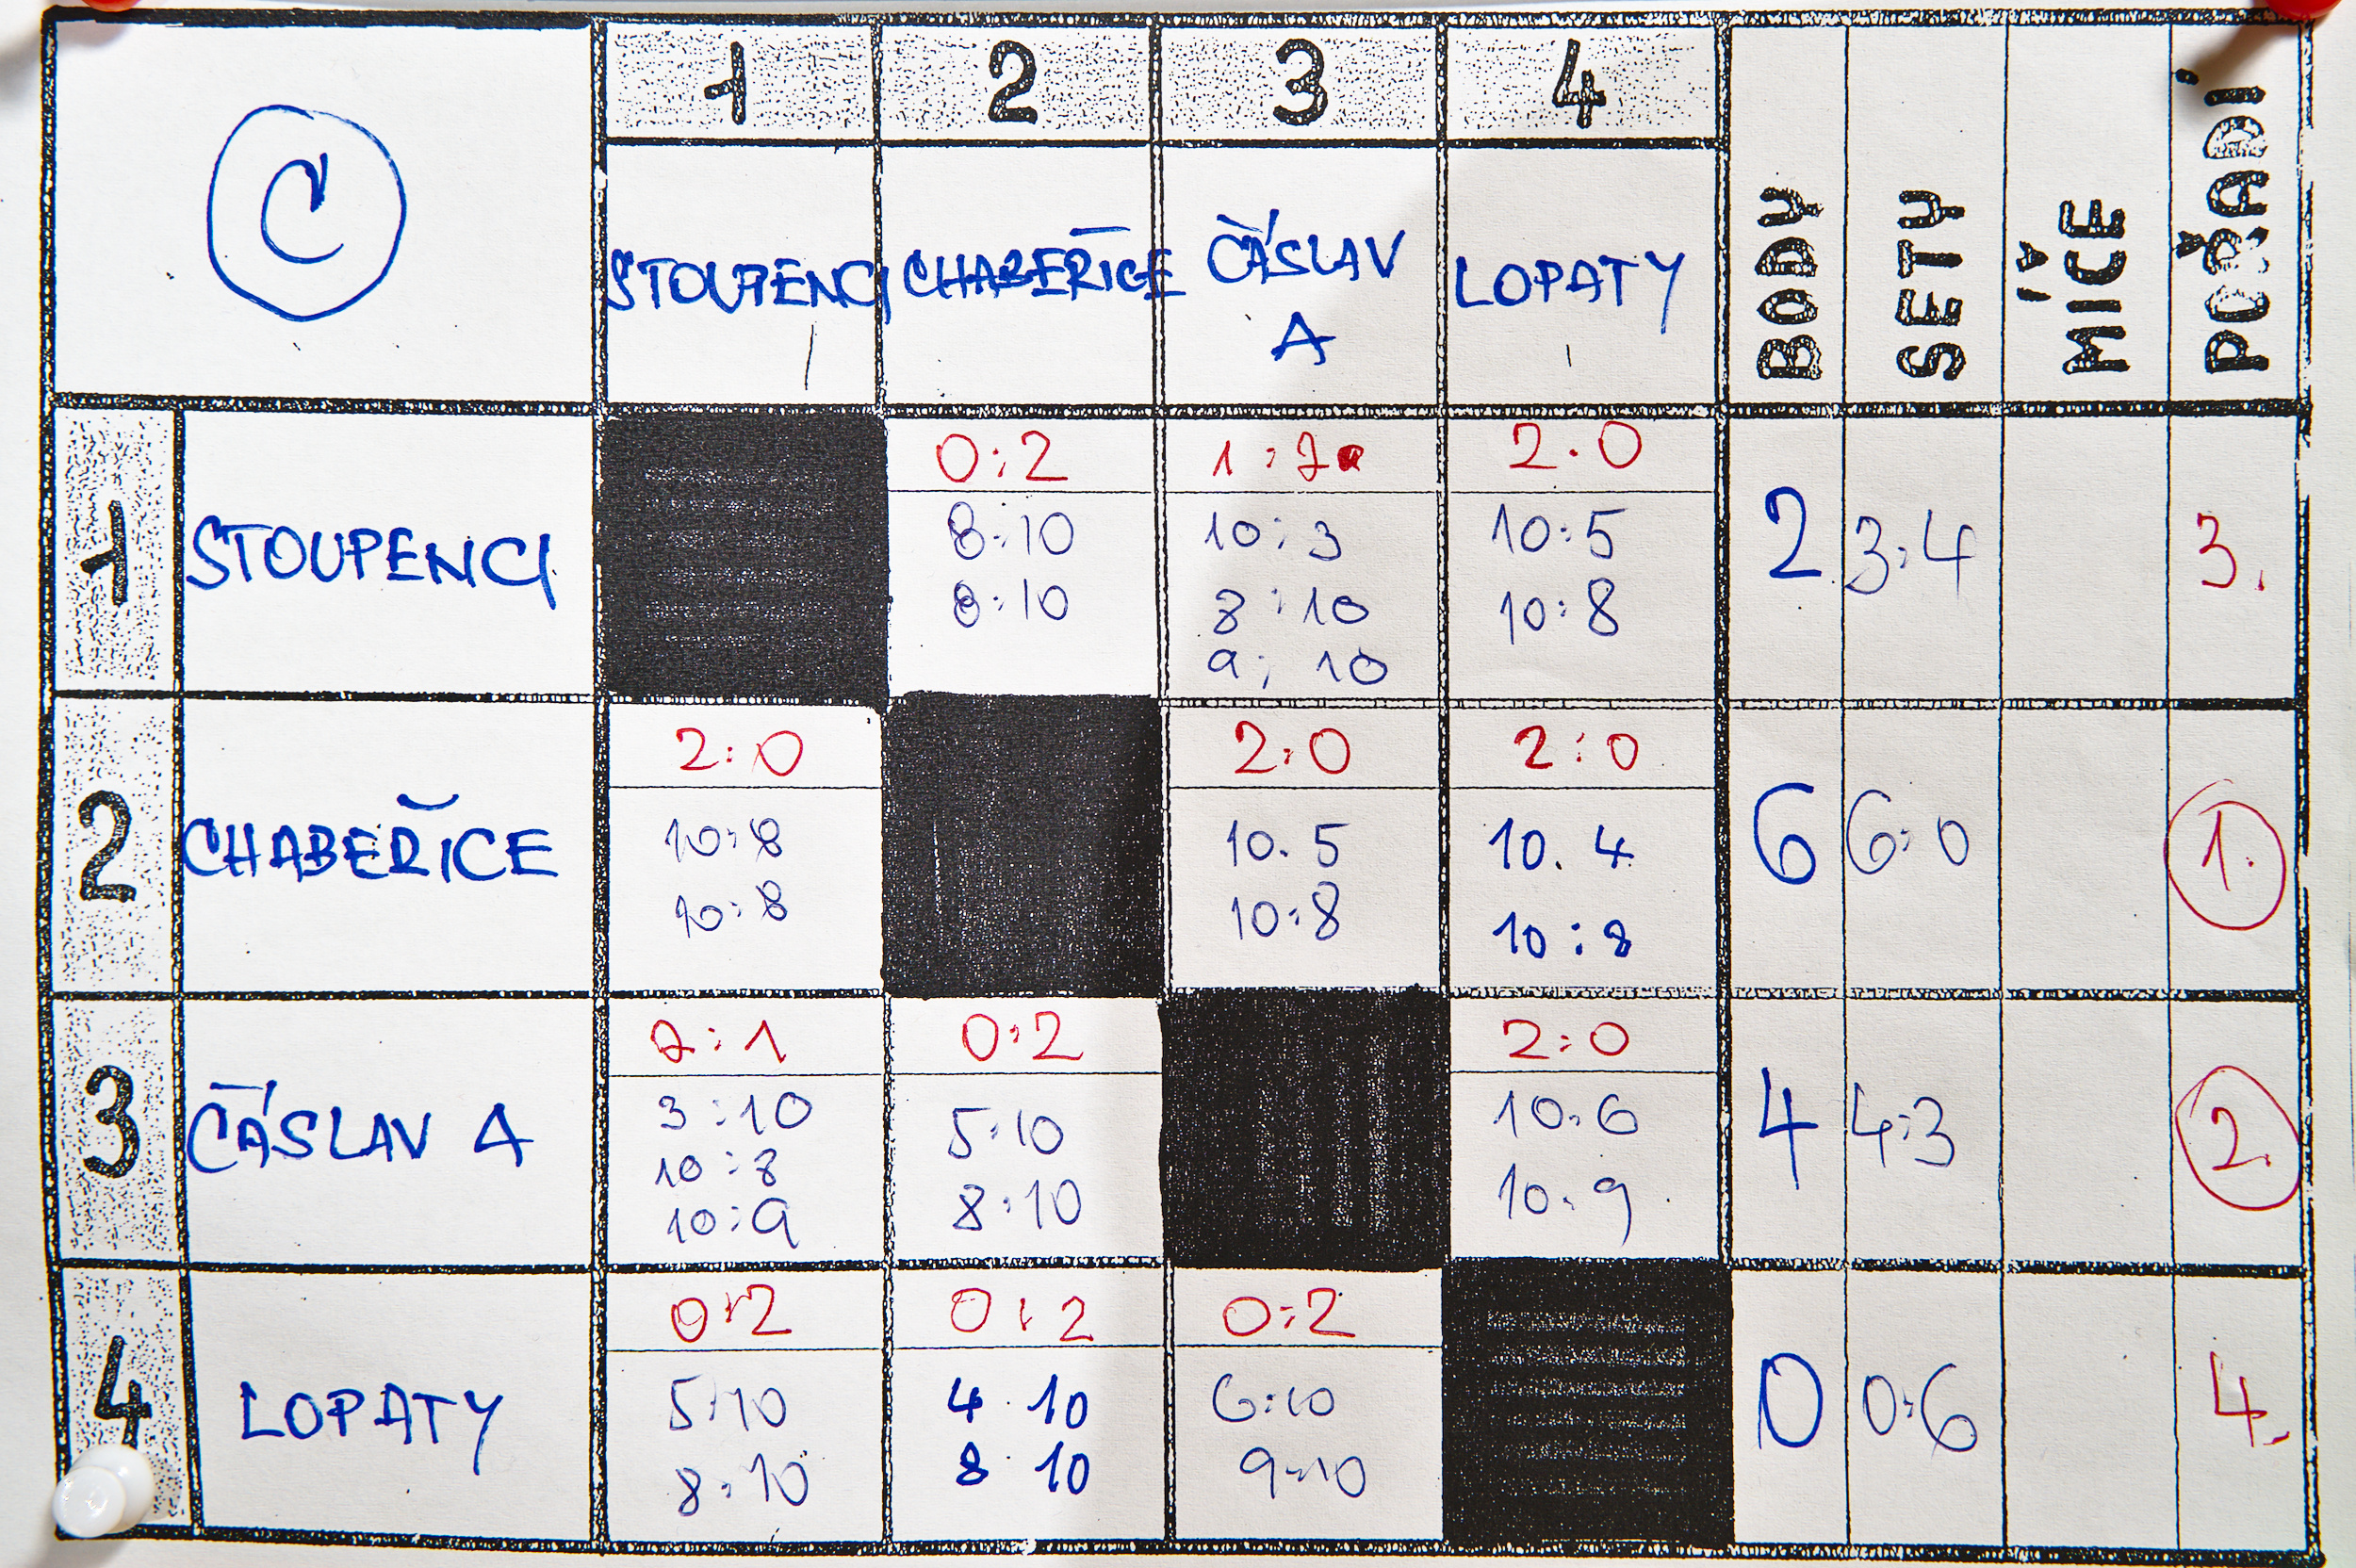 C
1 2 3 4
STOUPENCI CHABEŘICE ČÁSLAV A LOPATY
BODY SETY MÍČE POŘADÍ
1 STOUPENCI
0:2
8:10
8:10
1:2
10:3
8:10
9:10
2:0
10:5
10:8
2 3:4 3.
2 CHABEŘICE
2:0
10:8
10:8
2:0
10:5
10:8
2:0
10.4
10:8
6 6:0 1.
3 ČÁSLAV A
2:1
3:10
10:8
10:9
0:2
5:10
8:10
2:0
10:6
10:9
4 4:3 2.
4 LOPATY
0:2
5:10
8:10
0:2
4 10
8 10
0:2
6:10
9:10
0 0:6 4.